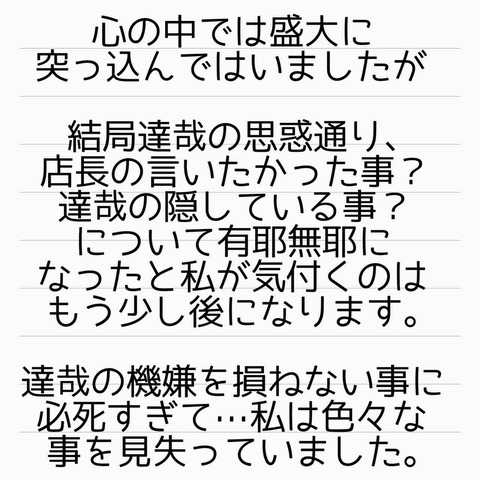 心の中では盛大に
突っ込んではいましたが
結局達哉の思惑通り、
店長の言いたかった事？
達哉の隠している事？
について有耶無耶に
なったと私が気付くのは
もう少し後になります。
達哉の機嫌を損ねない事に
必死すぎて…私は色々な
事を見失っていました。